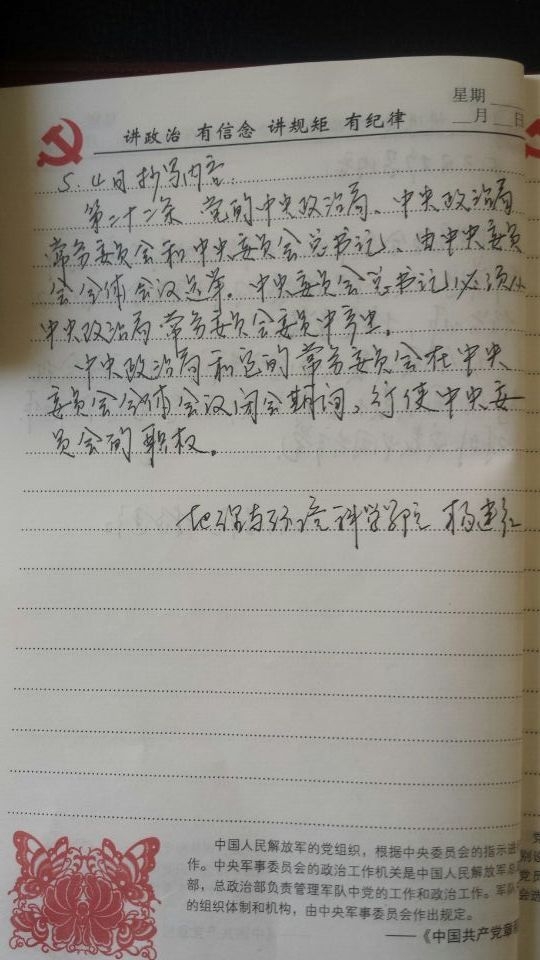 星期
月 日
讲政治 有信念 讲规矩 有纪律
5.4日抄写内容:
第二十二条 党的中央政治局、中央政治局
常务委员会和中央委员会总书记,由中央委员
会全体会议选举。中央委员会总书记必须从
中央政治局常务委员会委员中产生。
中央政治局和它的常务委员会在中央
委员会全体会议闭会期间,行使中央委
员会的职权。
地球与环境科学学院 杨建红
中国人民解放军的党组织,根据中央委员会的指示进
作。中央军事委员会的政治工作机关是中国人民解放军总
部,总政治部负责管理军队中党的工作和政治工作。军队
的组织体制和机构,由中央军事委员会作出规定。
——《中国共产党章程